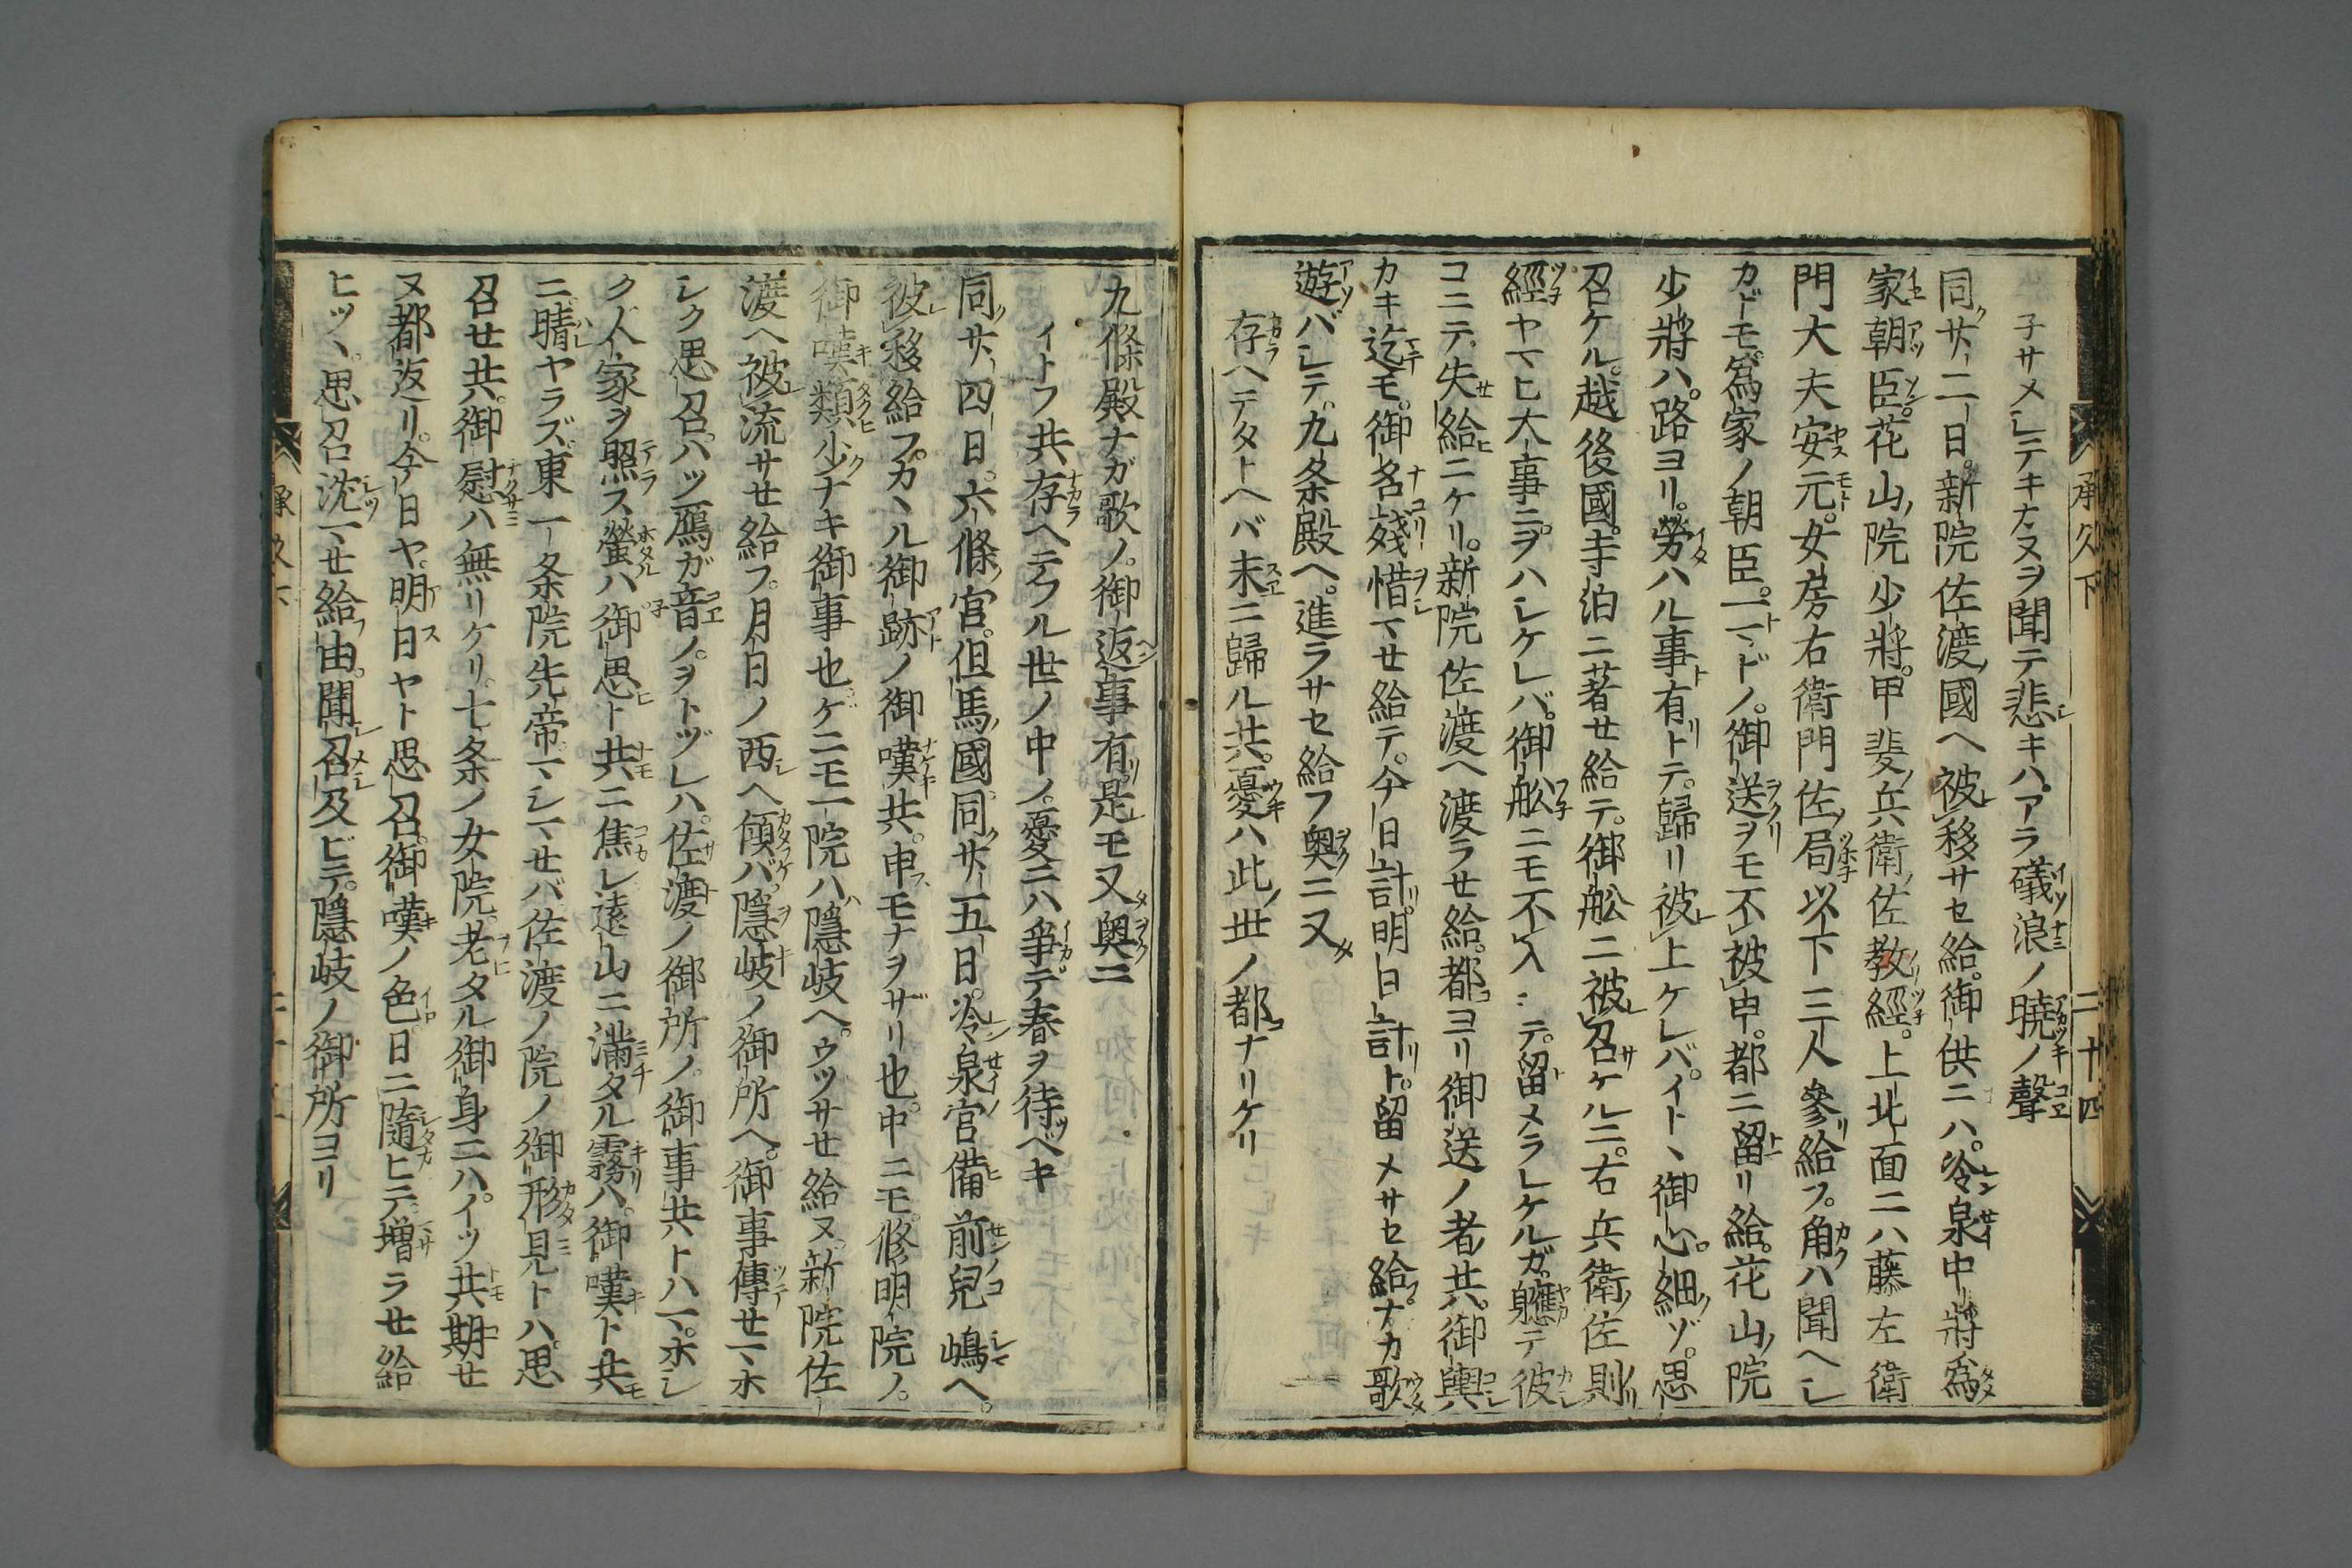 子サメシテキナヌヲ聞テ悲キハアラ礒浪ノ暁ノ聲
同廿二日。新院佐渡國ヘ被移サセ給。御供ニハ。冷泉中將爲
家朝臣。花山院少將。甲斐兵衛佐教經。上北面ニハ藤左衛
門大夫安元。女房右衛門佐局以下三人參給フ。角ハ聞ヘシ
カドモ。爲家ノ朝臣。一トドノ。御送ヲモ不被申。都ニ留リ給。花山院
少將ハ。路ヨリ。勞ハル事有トテ。歸リ被上ケレバ。イトヽ御心細ゾ。思
召ケル。越後國。寺泊ニ著セ給テ。御舩ニ被召ケルニ。右兵衛佐則
經ヤマヒ大事ニヲハシケレバ。御舩ニモ不入シテ。留メラレケルガ。軈テ彼
コニテ。失給ニケリ。新院佐渡ヘ渡ラセ給。都ヨリ御送ノ者共。御輿
カキ迄モ。御名殘惜マセ給テ。今日計。明日計ト。留メサセ給ナカ歌
遊バシテ。九条殿ヘ。進ラサセ給フ奥ニ又
存ヘテタトヘバ末ニ歸ル共。憂ハ此世ノ都ナリケリ
承久下
二十四
九條殿ナガ歌ノ。御返事有。是モ又奥ニ
イトフ共存ヘテフル世ノ中ノ。憂ニハ爭デ春ヲ待ベキ
同廿四日。六條宮。但馬國。同廿五日。冷泉宮備前兒嶋ヘ。
被移給フ。カヽル御跡ノ御嘆共。申モナヲザリ也。中ニモ。修明院ノ。
御嘆類少ナキ御事也。ゲニモ一院ハ。隱岐ヘ。ウツサセ給ヌ。新院佐
渡ヘ被流サセ給フ。月日ノ西ヘ傾バ。隱岐ノ御所ヘ。御事傳セマホ
シク思召。ハツ鴈ガ音ノ。ヲトヅレハ。佐渡ノ御所ノ。御事共トハマホシ
ク人家ヲ照ス螢ハ御思ト共ニ焦レ遠山ニ滿タル霧ハ。御嘆ト共
ニ晴ヤラズ。東一条院先帝マシマセバ佐渡ノ院ノ御形見トハ。思
召セ共。御慰ハ無リケリ。七条ノ女院老タル御身ニハ。イツ共期セ
ヌ都返リ。今日ヤ。明日ヤト思召。御嘆ノ色日ニ隨ヒテ。增ラセ給
ヒツヽ思召沈マセ給由。聞召及ビテ。隱岐ノ御所ヨリ
承久下